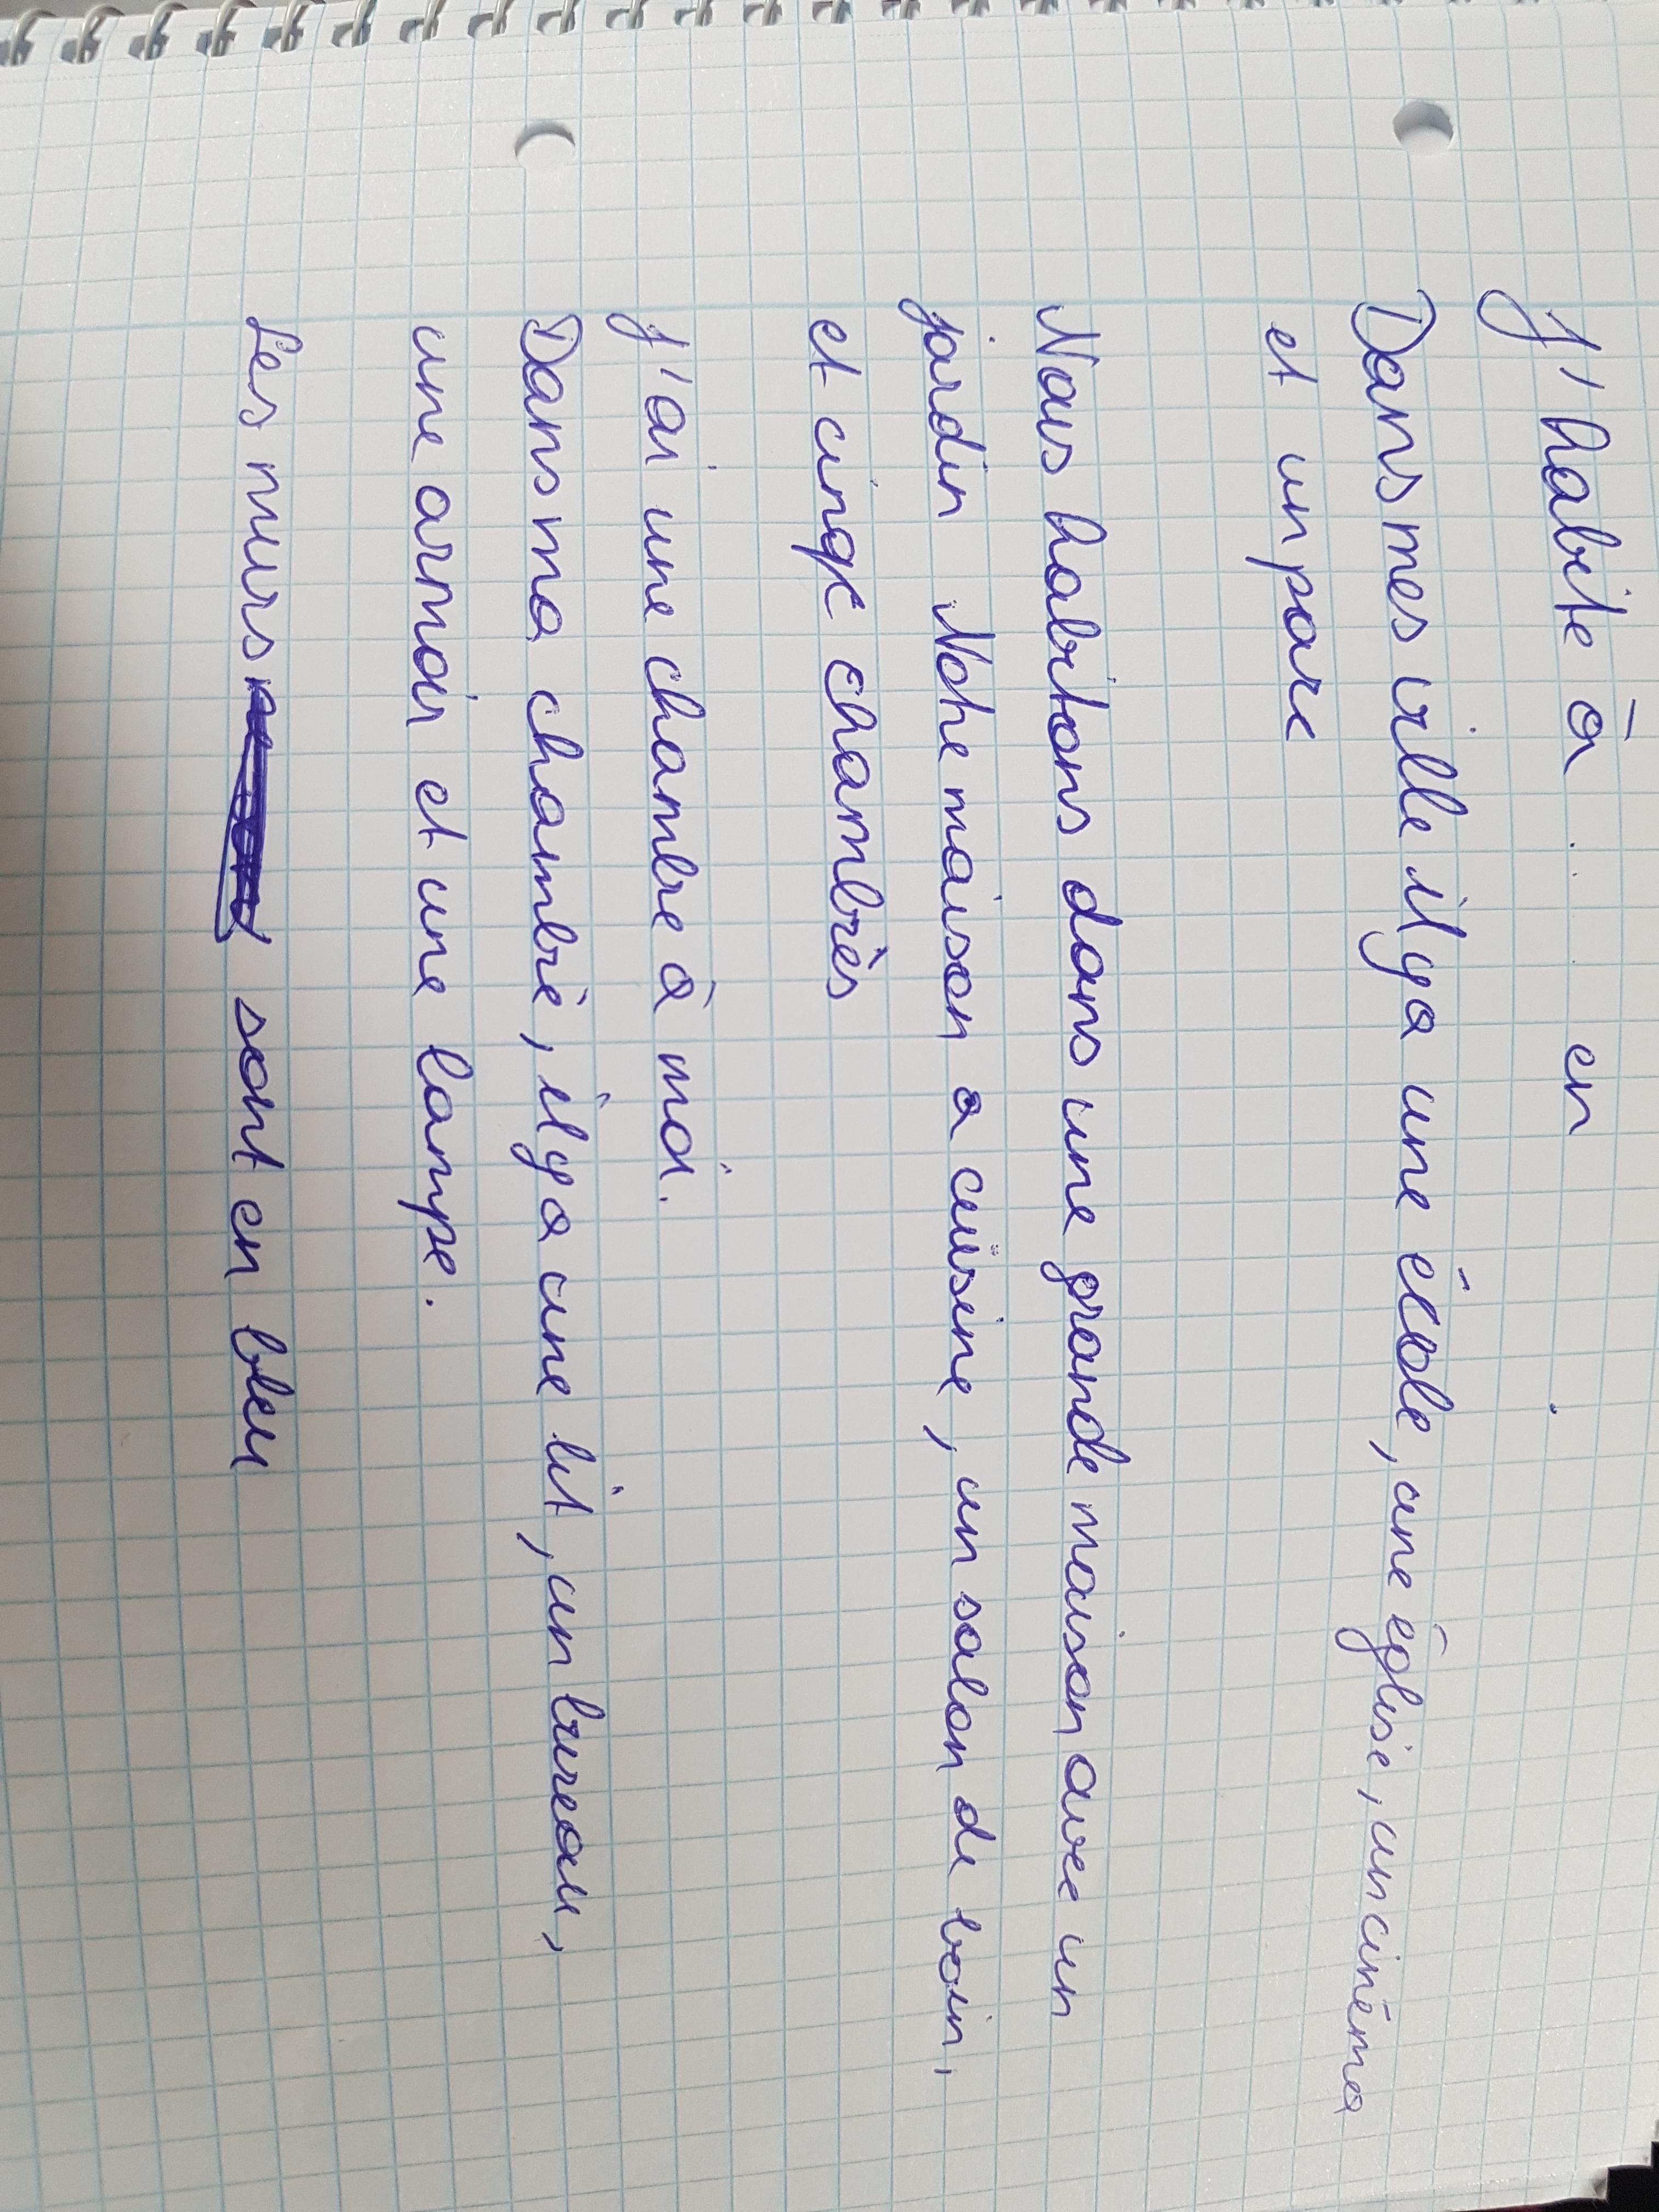 J'habite à ... en .
Dans mes ville il y a une école, une église, un cinéma
et un parc
Nous habitons dans une grande maison avec un
jardin Notre maison a cuisine, un salon de bain,
et cinqx chambrès
J'ai une chambre à moi.
Dans ma chambrè, il y a une lit, un bureau,
une armoir et une lampe.
Les murs sont en bleu